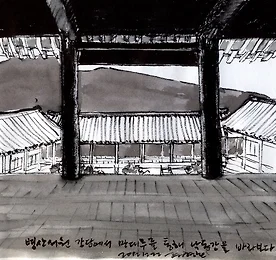 병산서원 강당에서 만대루를 통해 낙동강을 바라보다